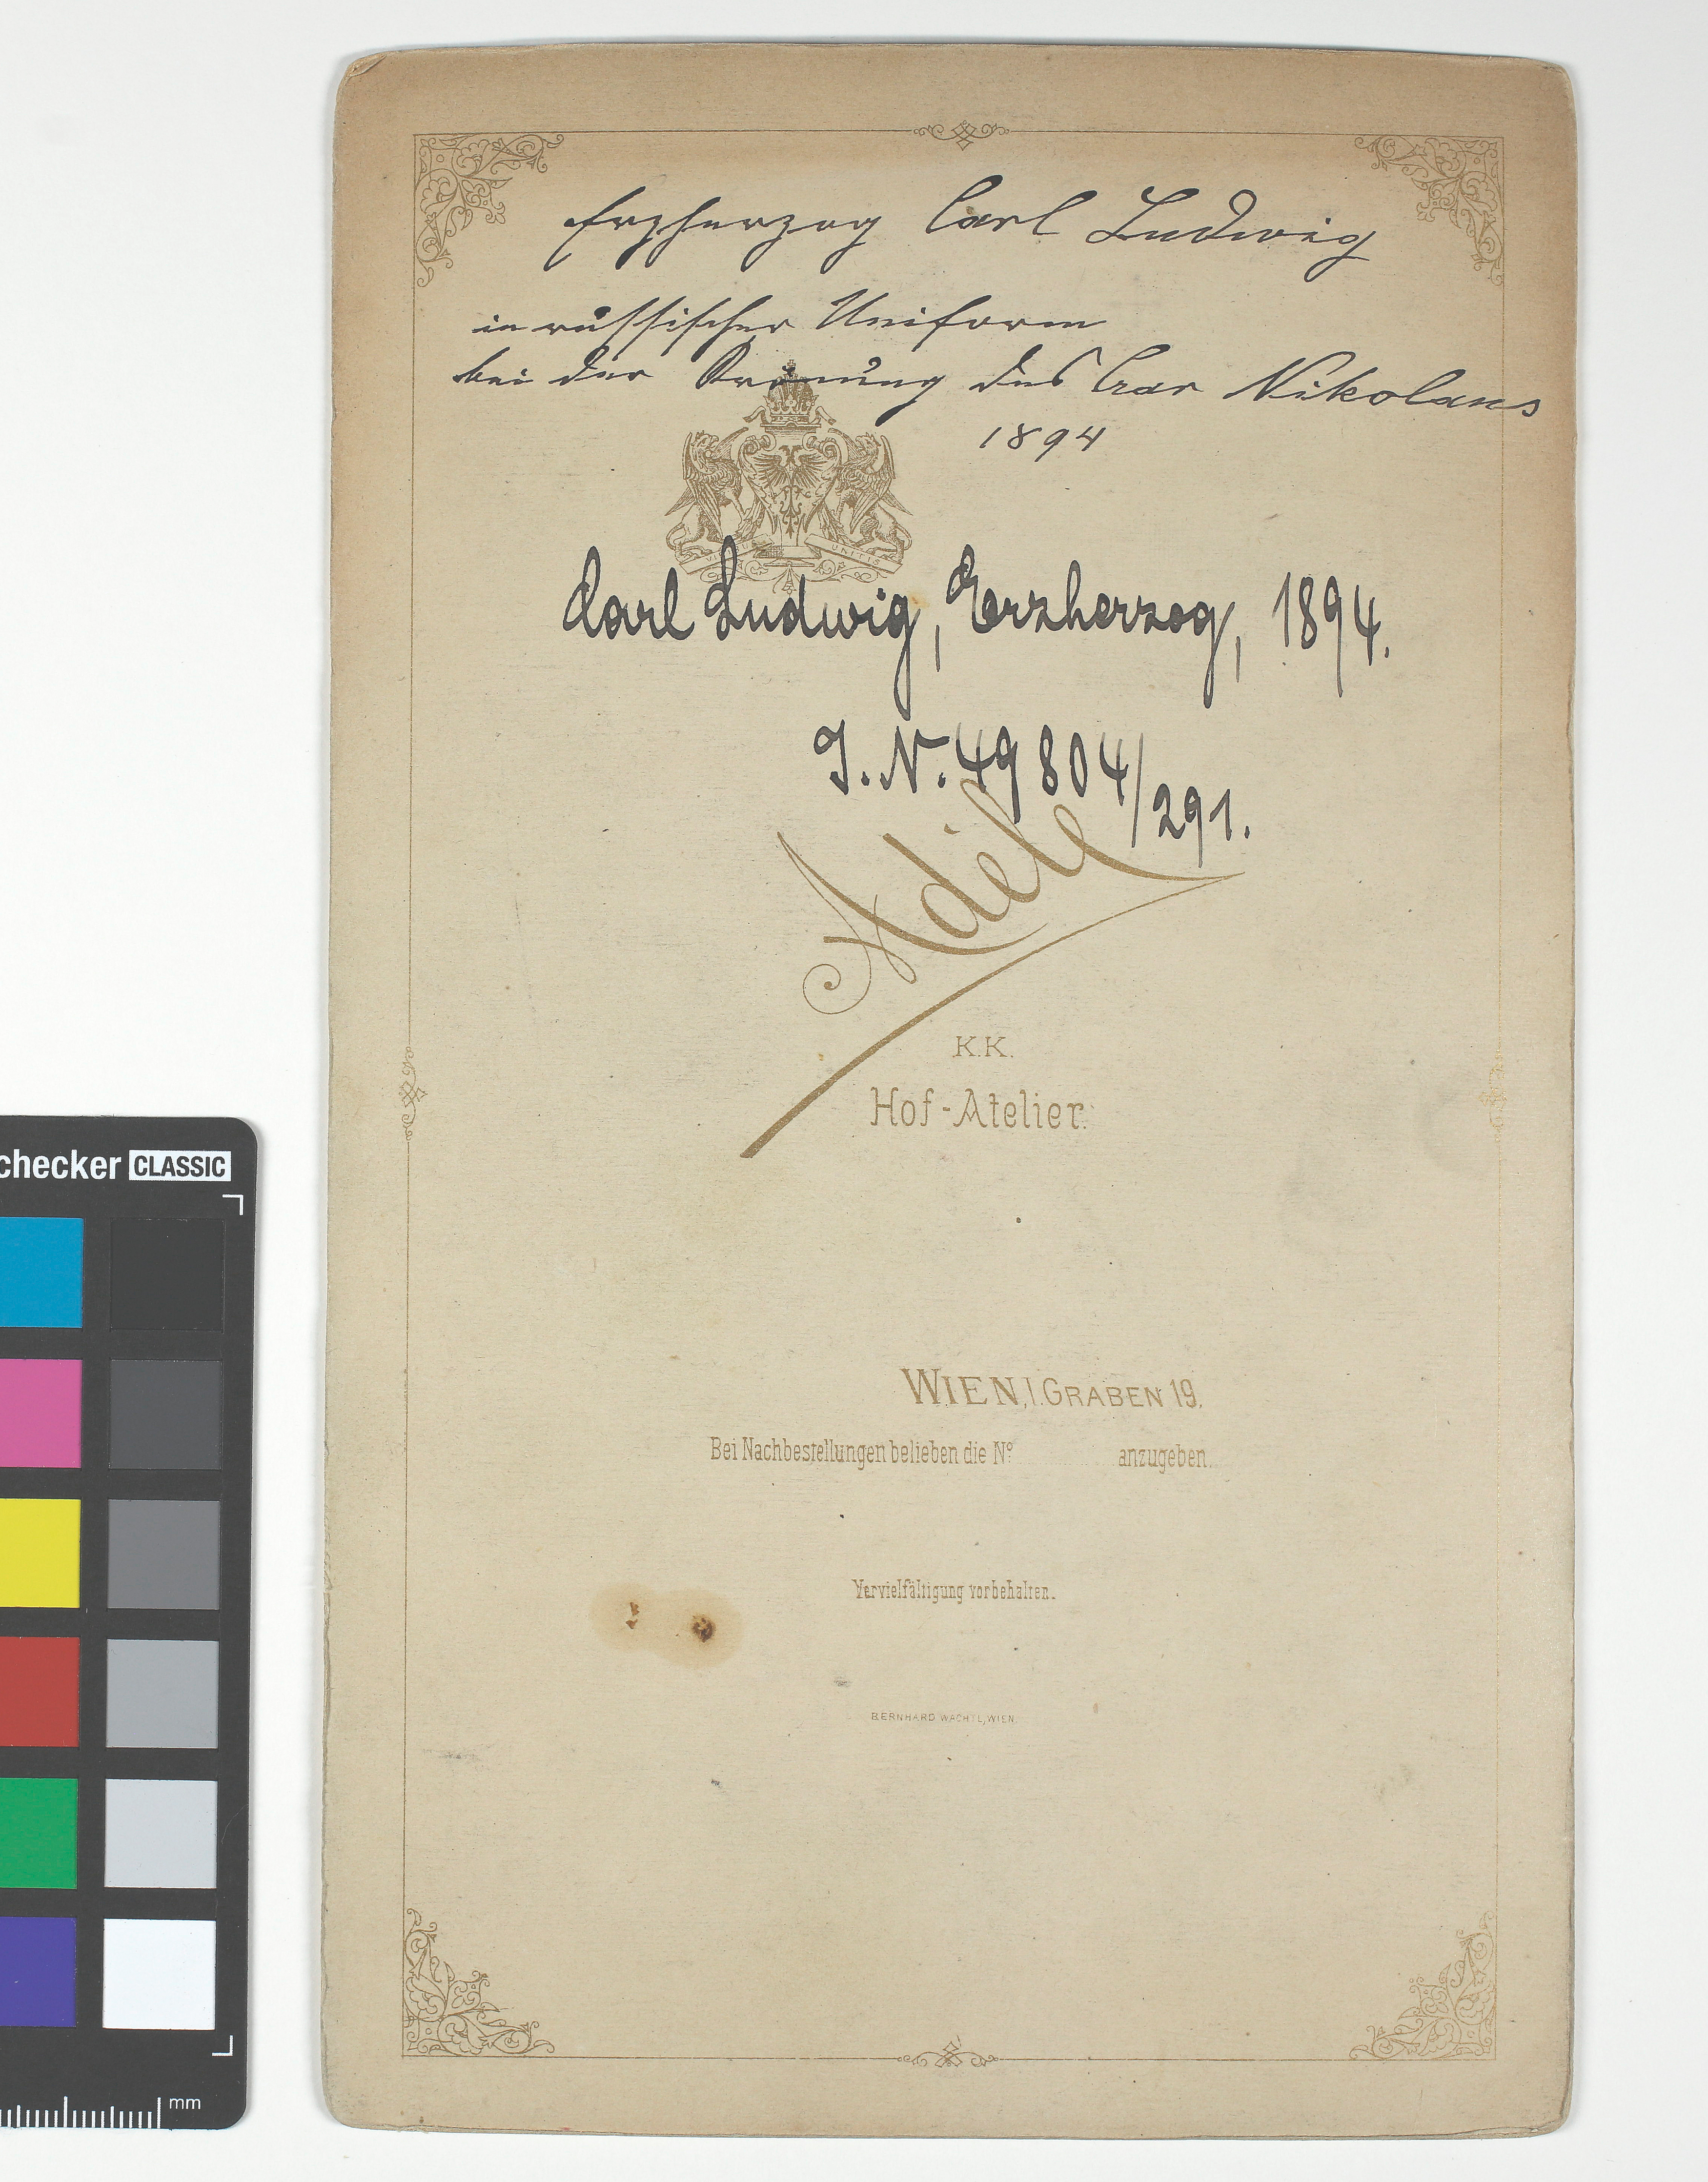 Erzherzog Carl Ludwig
in russischer Uniform
bei der Krönung des Czar Nikolaus
1894
VIRIBUS UNITIS
Carl Ludwig, Erzherzog, 1894.
I. N. 49804/291.
Adèle
K.K.
Hof-Atelier.
WIEN, I. GRABEN 19.
Bei Nachbestellungen belieben die Nº anzugeben.
Vervielfältigung vorbehalten.
BERNHARD WACHTL, WIEN
checker CLASSIC
mm